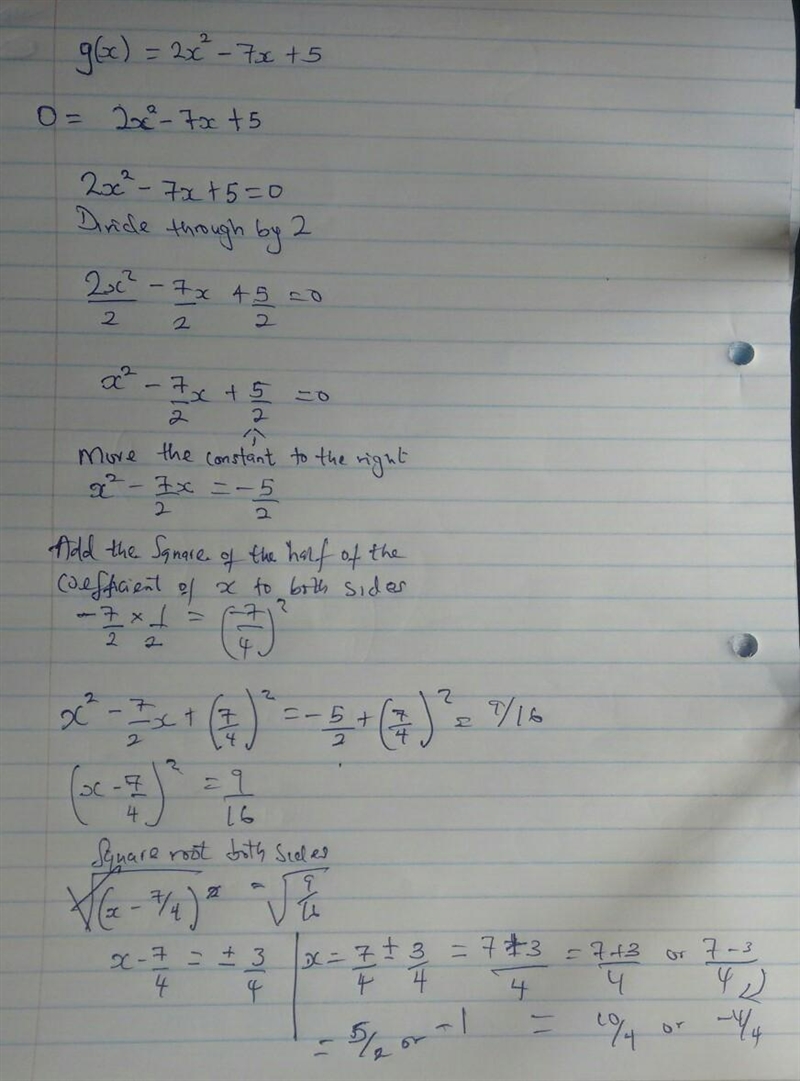 g(x) = 2x² - 7x + 5
0 = 2x² - 7x + 5
2x² - 7x + 5 = 0
Divide through by 2
2x²/2 - 7x/2 + 5/2 = 0
x² - 7/2x + 5/2 = 0
Move the constant to the right
x² - 7x/2 = -5/2
Add the Square of the half of the
Coefficient of x to both sides
-7/2 × 1/2 = (-7/4)²
x² - 7/2x + (7/4)² = -5/2 + (7/4)² = 9/16
(x - 7/4)² = 9/16
Square root both sides
√(x - 7/4)² = √9/16
x - 7/4 = ± 3/4 | x = 7/4 ± 3/4 = 7±3/4 = 7+3/4 or 7-3/4
= 5/2 or -1 = 10/4 or -4/4